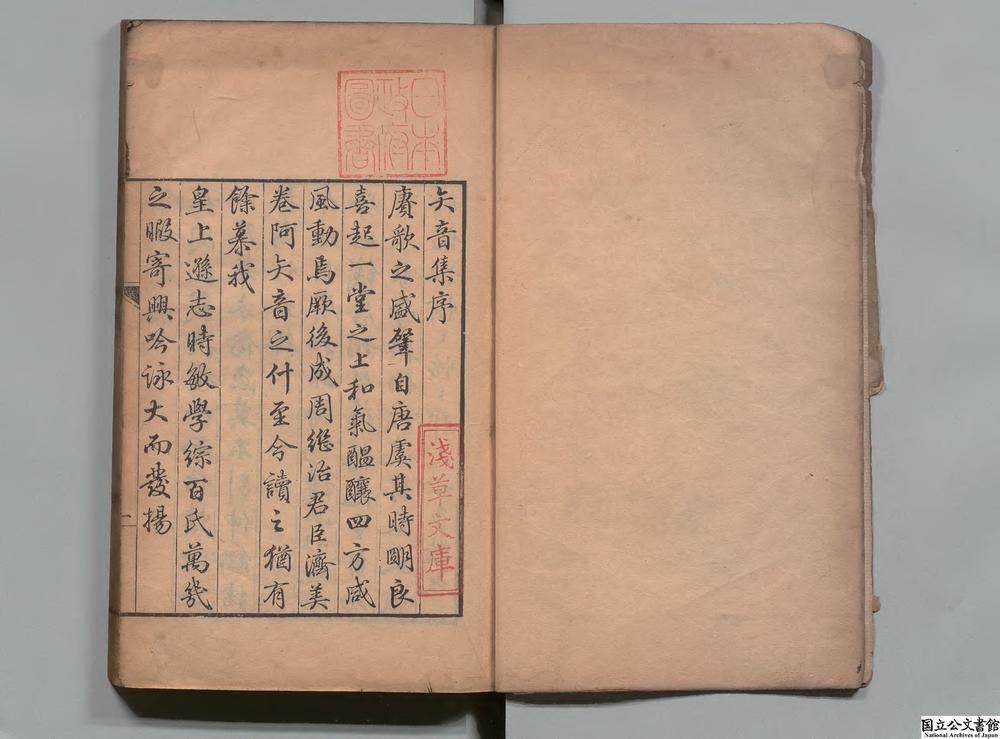 日本
政府
圖書
矢音集序
賡歌之盛肇自唐虞其時明良
喜起一堂之上和氣醖釀四方咸
風動焉厥後成周継治君臣濟美
卷阿矢音之什至今讀之猶有
餘慕我
皇上遜志時敏學綜百氏萬幾
之暇寄興吟詠大而發揚
一
淺草文庫
国立公文書館
National Archives of Japan